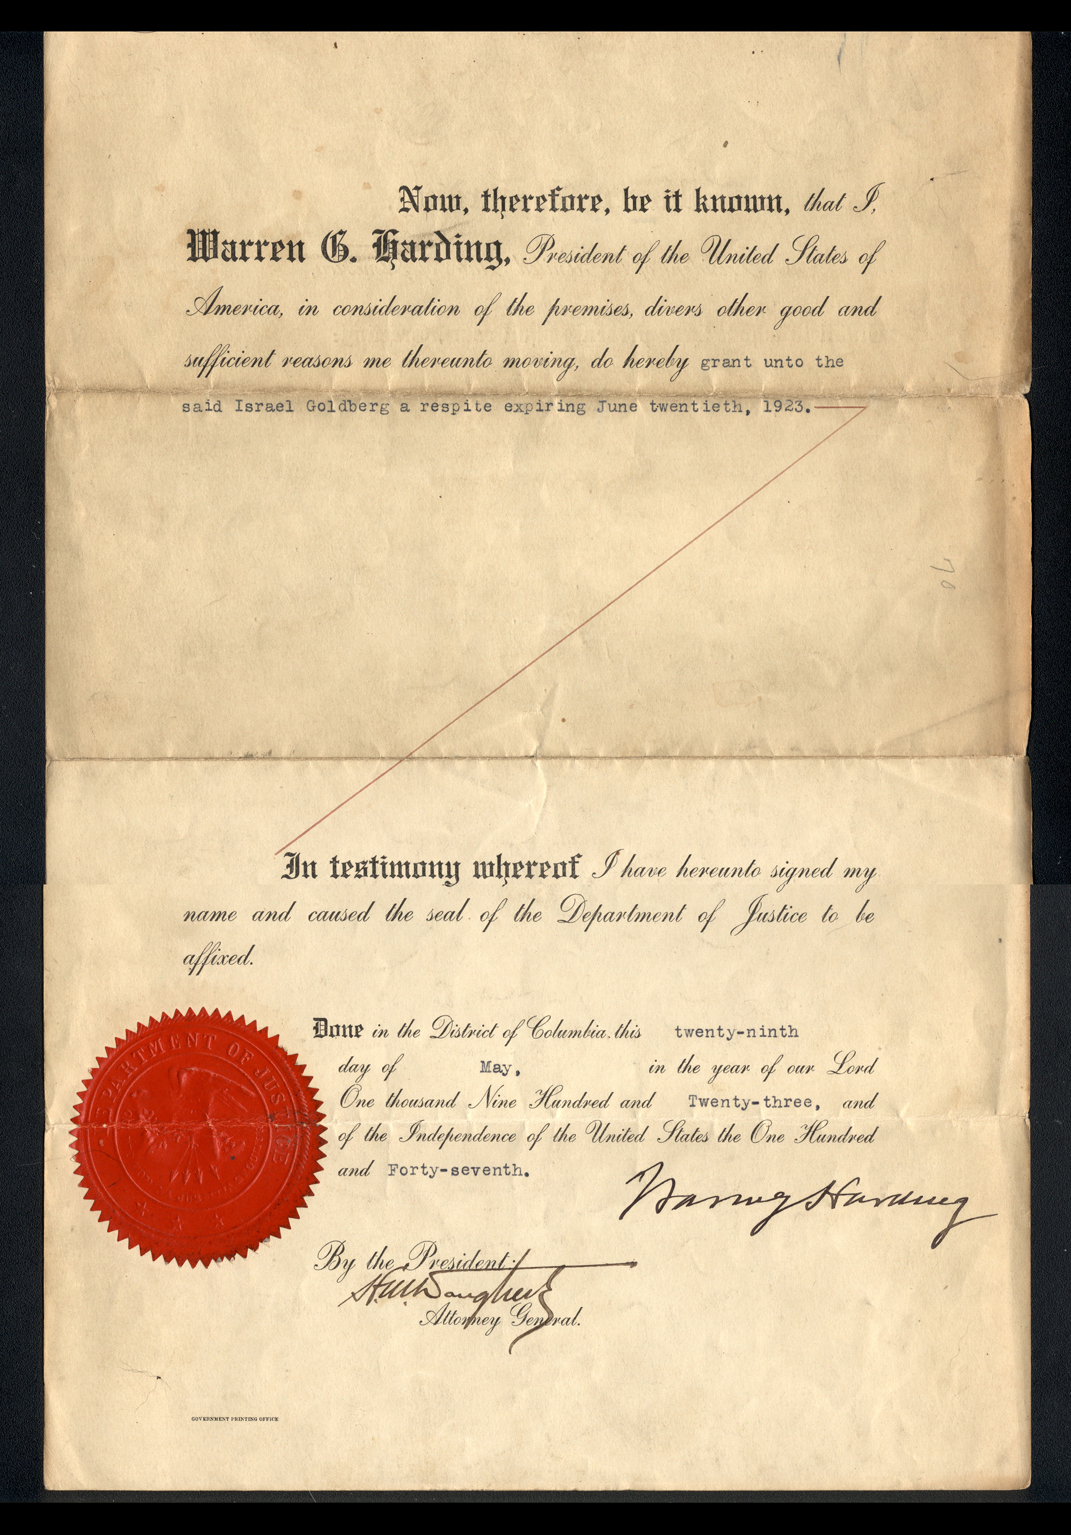 Now, therefore, be it known, that I,
Warren G. Harding, President of the United States of
America, in consideration of the premises, divers other good and
sufficient reasons me thereunto moving, do hereby grant unto the
said Israel Goldberg a respite expiring June twentieth, 1923.
70
In testimony whereof I have hereunto signed my
name and caused the seal of the Department of Justice to be
affixed.
DEPARTMENT OF JUSTICE
Done in the District of Columbia this twenty-ninth
day of May, in the year of our Lord
One thousand Nine Hundred and Twenty-three, and
of the Independence of the United States the One Hundred
and Forty-seventh.
Warren G Harding
By the President:
H.M. Daugherty
Attorney General.
GOVERNMENT PRINTING OFFICE